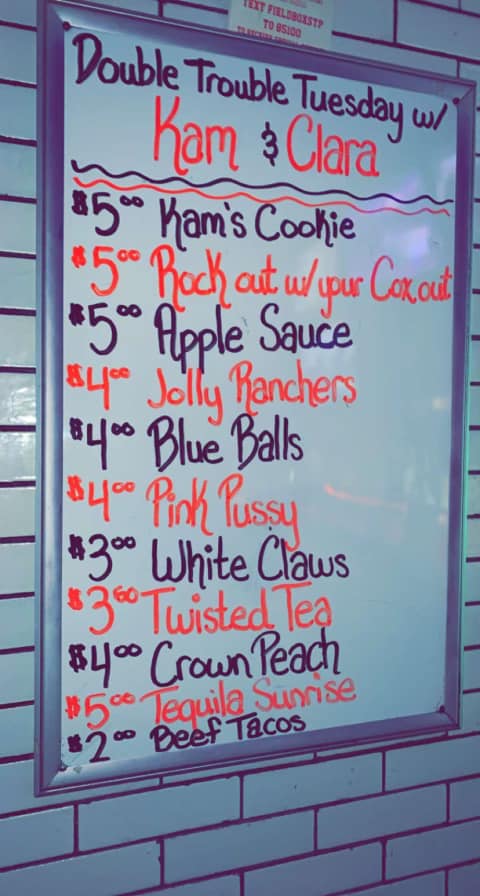 TEXT FIELDBOXSTP
TO 85100
Double Trouble Tuesday w/
Kam & Clara
$5.00 Kam's Cookie
$5.00 Rock out w/ your Cox out
$5.00 Apple Sauce
$4.00 Jolly Ranchers
$4.00 Blue Balls
$4.00 Pink Pussy
$3.00 White Claws
$3.60 Twisted Tea
$4.00 Crown Peach
$5.00 Tequila Sunrise
$2.00 Beef Tacos